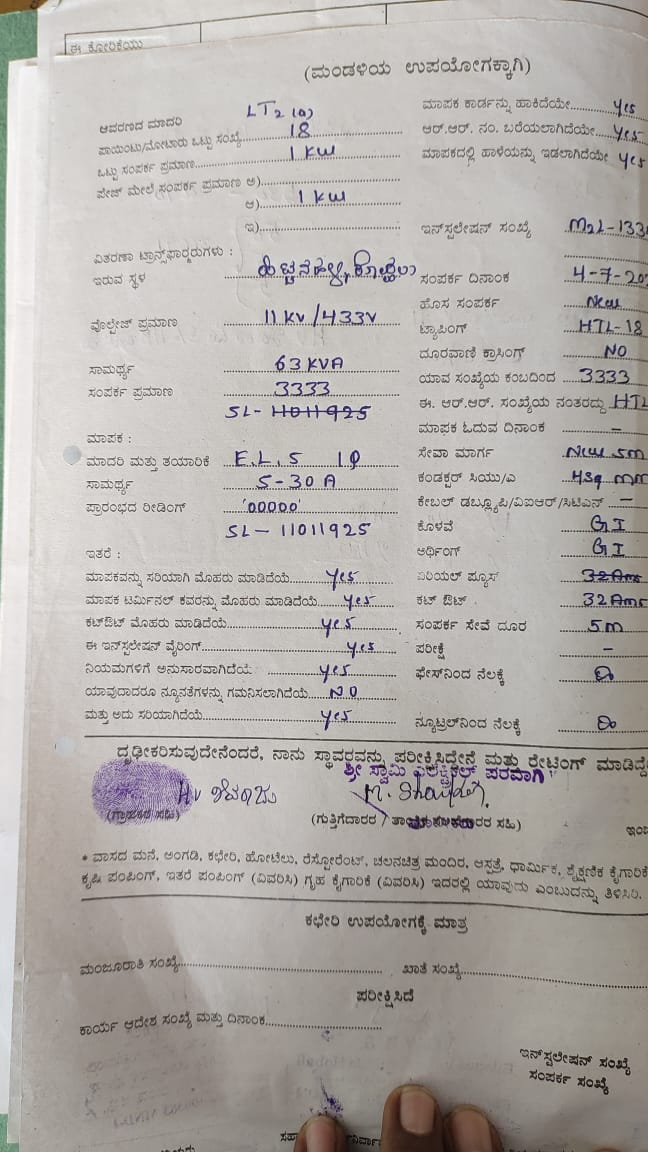 ಈ ಕೋರಿಕೆಯು
(ಮಂಡಳಿಯ ಉಪಯೋಗಕ್ಕಾಗಿ)
ಆವರಣದ ಮಾದರಿ LT2 (a)
ಪಾಯಿಂಟು/ಮೋಟಾರು ಒಟ್ಟು ಸಂಖ್ಯೆ 18
ಒಟ್ಟು ಸಂಪರ್ಕ ಪ್ರಮಾಣ 1 KW
ಪೇಜ್ ಮೇಲೆ ಸಂಪರ್ಕ ಪ್ರಮಾಣ ಅ)
ಆ) 1 KW
ಇ)
ವಿತರಣಾ ಟ್ರಾನ್ಸ್‌ಫಾರ್ಮರುಗಳು :
ಇರುವ ಸ್ಥಳ
ವೊಲ್ಟೇಜ್ ಪ್ರಮಾಣ 11 KV /433V
ಸಾಮರ್ಥ್ಯ 63 KVA
ಸಂಪರ್ಕ ಪ್ರಮಾಣ 3333
SL- 11011925
ಮಾಪಕ :
ಮಾದರಿ ಮತ್ತು ತಯಾರಿಕೆ E.L.S 1Φ
ಸಾಮರ್ಥ್ಯ 5-30 A
ಪ್ರಾರಂಭದ ರೀಡಿಂಗ್ '00000'
SL - 11011925
ಇತರೆ :
ಮಾಪಕವನ್ನು ಸರಿಯಾಗಿ ಮೊಹರು ಮಾಡಿದೆಯೆ yes
ಮಾಪಕ ಟರ್ಮಿನಲ್ ಕವರನ್ನು ಮೊಹರು ಮಾಡಿದೆಯೆ yes
ಕಟ್‌ಔಟ್ ಮೊಹರು ಮಾಡಿದೆಯೆ yes
ಈ ಇನ್‌ಸ್ಟಲೇಷನ್ ವೈರಿಂಗ್ yes
ನಿಯಮಗಳಿಗೆ ಅನುಸಾರವಾಗಿದೆಯೆ yes
ಯಾವುದಾದರೂ ನ್ಯೂನತೆಗಳನ್ನು ಗಮನಿಸಲಾಗಿದೆಯೆ NO
ಮತ್ತು ಅದು ಸರಿಯಾಗಿದೆಯೆ yes
ಮಾಪಕ ಕಾರ್ಡನ್ನು ಹಾಕಿದೆಯೇ yes
ಆರ್.ಆರ್. ನಂ. ಬರೆಯಲಾಗಿದೆಯೇ yes
ಮಾಪಕದಲ್ಲಿ ಹಾಳೆಯನ್ನು ಇಡಲಾಗಿದೆಯೇ yes
ಇನ್‌ಸ್ಟಲೇಷನ್ ಸಂಖ್ಯೆ M2L-133
ಸಂಪರ್ಕ ದಿನಾಂಕ 4-7-20
ಹೊಸ ಸಂಪರ್ಕ New
ಟ್ಯಾಪಿಂಗ್ HTL-18
ದೂರವಾಣಿ ಕ್ರಾಸಿಂಗ್ NO
ಯಾವ ಸಂಖ್ಯೆಯ ಕಂಬದಿಂದ 3333
ಈ. ಆರ್.ಆರ್. ಸಂಖ್ಯೆಯ ನಂತರದ್ದು HTL
ಮಾಪಕ ಓದುವ ದಿನಾಂಕ -
ಸೇವಾ ಮಾರ್ಗ New 5m
ಕಂಡಕ್ಟರ್ ಸಿಯು/ಎ 4sq mm
ಕೇಬಲ್ ಡಬ್ಲ್ಯೂಪಿ/ವಿಐಆರ್/ಸಿಟಿಎಸ್ -
ಕೊಳವೆ GI
ಅರ್ಥಿಂಗ್ GI
ಏರಿಯಲ್ ಫ್ಯೂಸ್ 32 Ams
ಕಟ್ ಔಟ್ 32 Ams
ಸಂಪರ್ಕ ಸೇವೆ ದೂರ 5m
ಪರೀಕ್ಷೆ -
ಫೇಸ್‌ನಿಂದ ನೆಲಕ್ಕೆ
ನ್ಯೂಟ್ರಲ್‌ನಿಂದ ನೆಲಕ್ಕೆ
ದೃಢೀಕರಿಸುವುದೇನೆಂದರೆ, ನಾನು ಸ್ಥಾವರವನ್ನು ಪರೀಕ್ಷಿಸಿದ್ದೇನೆ ಮತ್ತು ರೇಟಿಂಗ್ ಮಾಡಿದ್ದೇ
ಶ್ರೀ ಸ್ವಾಮಿ ಎಲೆಕ್ಟ್ರಿಕಲ್ ಪರವಾಗಿ
(ಗ್ರಾಹಕರ ಸಹಿ)
(ಗುತ್ತಿಗೆದಾರರ / ಸಹಿ)
ಇಂಜ
* ವಾಸದ ಮನೆ, ಅಂಗಡಿ, ಕಛೇರಿ, ಹೋಟೆಲು, ರೆಸ್ಟೋರೆಂಟ್, ಚಲನಚಿತ್ರ ಮಂದಿರ, ಆಸ್ಪತ್ರೆ, ಧಾರ್ಮಿಕ, ಶೈಕ್ಷಣಿಕ ಕೈಗಾರಿಕೆ
ಕೃಷಿ ಪಂಪಿಂಗ್, ಇತರೆ ಪಂಪಿಂಗ್ (ವಿವರಿಸಿ) ಗೃಹ ಕೈಗಾರಿಕೆ (ವಿವರಿಸಿ) ಇದರಲ್ಲಿ ಯಾವುದು ಎಂಬುದನ್ನು ತಿಳಿಸಿರಿ.
ಕಛೇರಿ ಉಪಯೋಗಕ್ಕೆ ಮಾತ್ರ
ಮಂಜೂರಾತಿ ಸಂಖ್ಯೆ ಖಾತೆ ಸಂಖ್ಯೆ
ಪರೀಕ್ಷಿಸಿದೆ
ಕಾರ್ಯ ಆದೇಶ ಸಂಖ್ಯೆ ಮತ್ತು ದಿನಾಂಕ
ಇನ್‌ಸ್ಟಲೇಷನ್ ಸಂಖ್ಯೆ
ಸಂಪರ್ಕ ಸಂಖ್ಯೆ